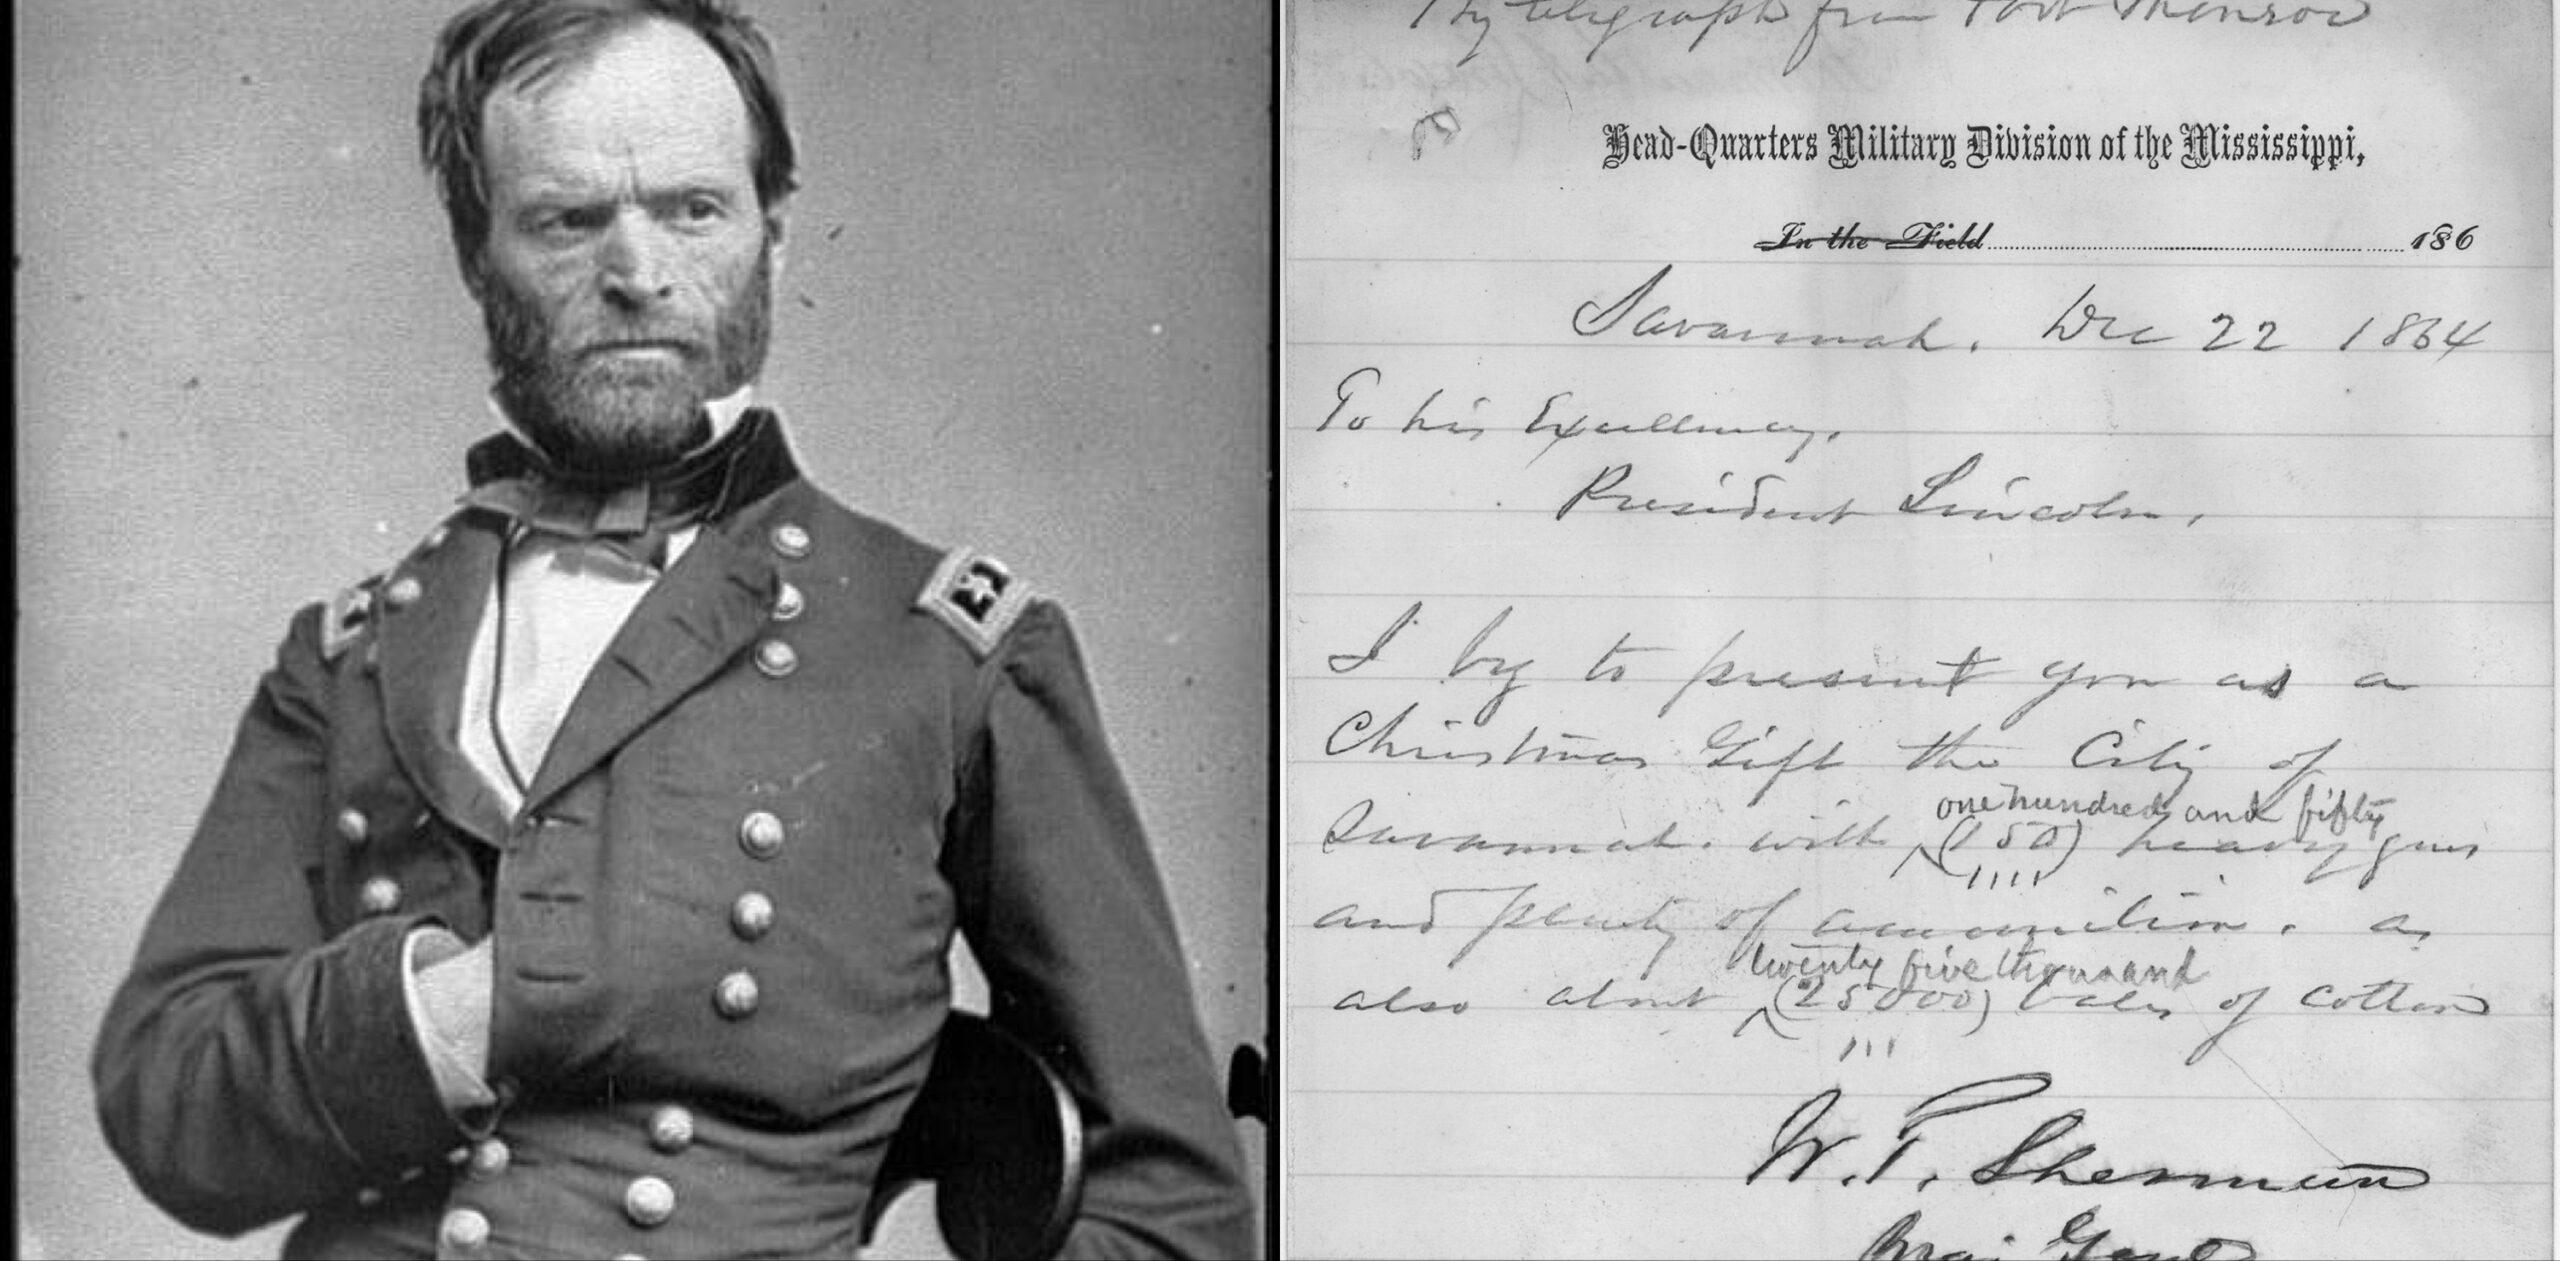 By telegraph from Fort Monroe
Head-Quarters Military Division of the Mississippi,
In the Field 186
Savannah. Dec 22 1864
To his Excellency,
President Lincoln,
I beg to present you as a
Christmas Gift the City of
one hundred and fifty
Savannah. with (150) heavy guns
and plenty of ammunition. as
twenty five thousand
also about (25000) bales of cotton
W. T. Sherman
Maj Genl